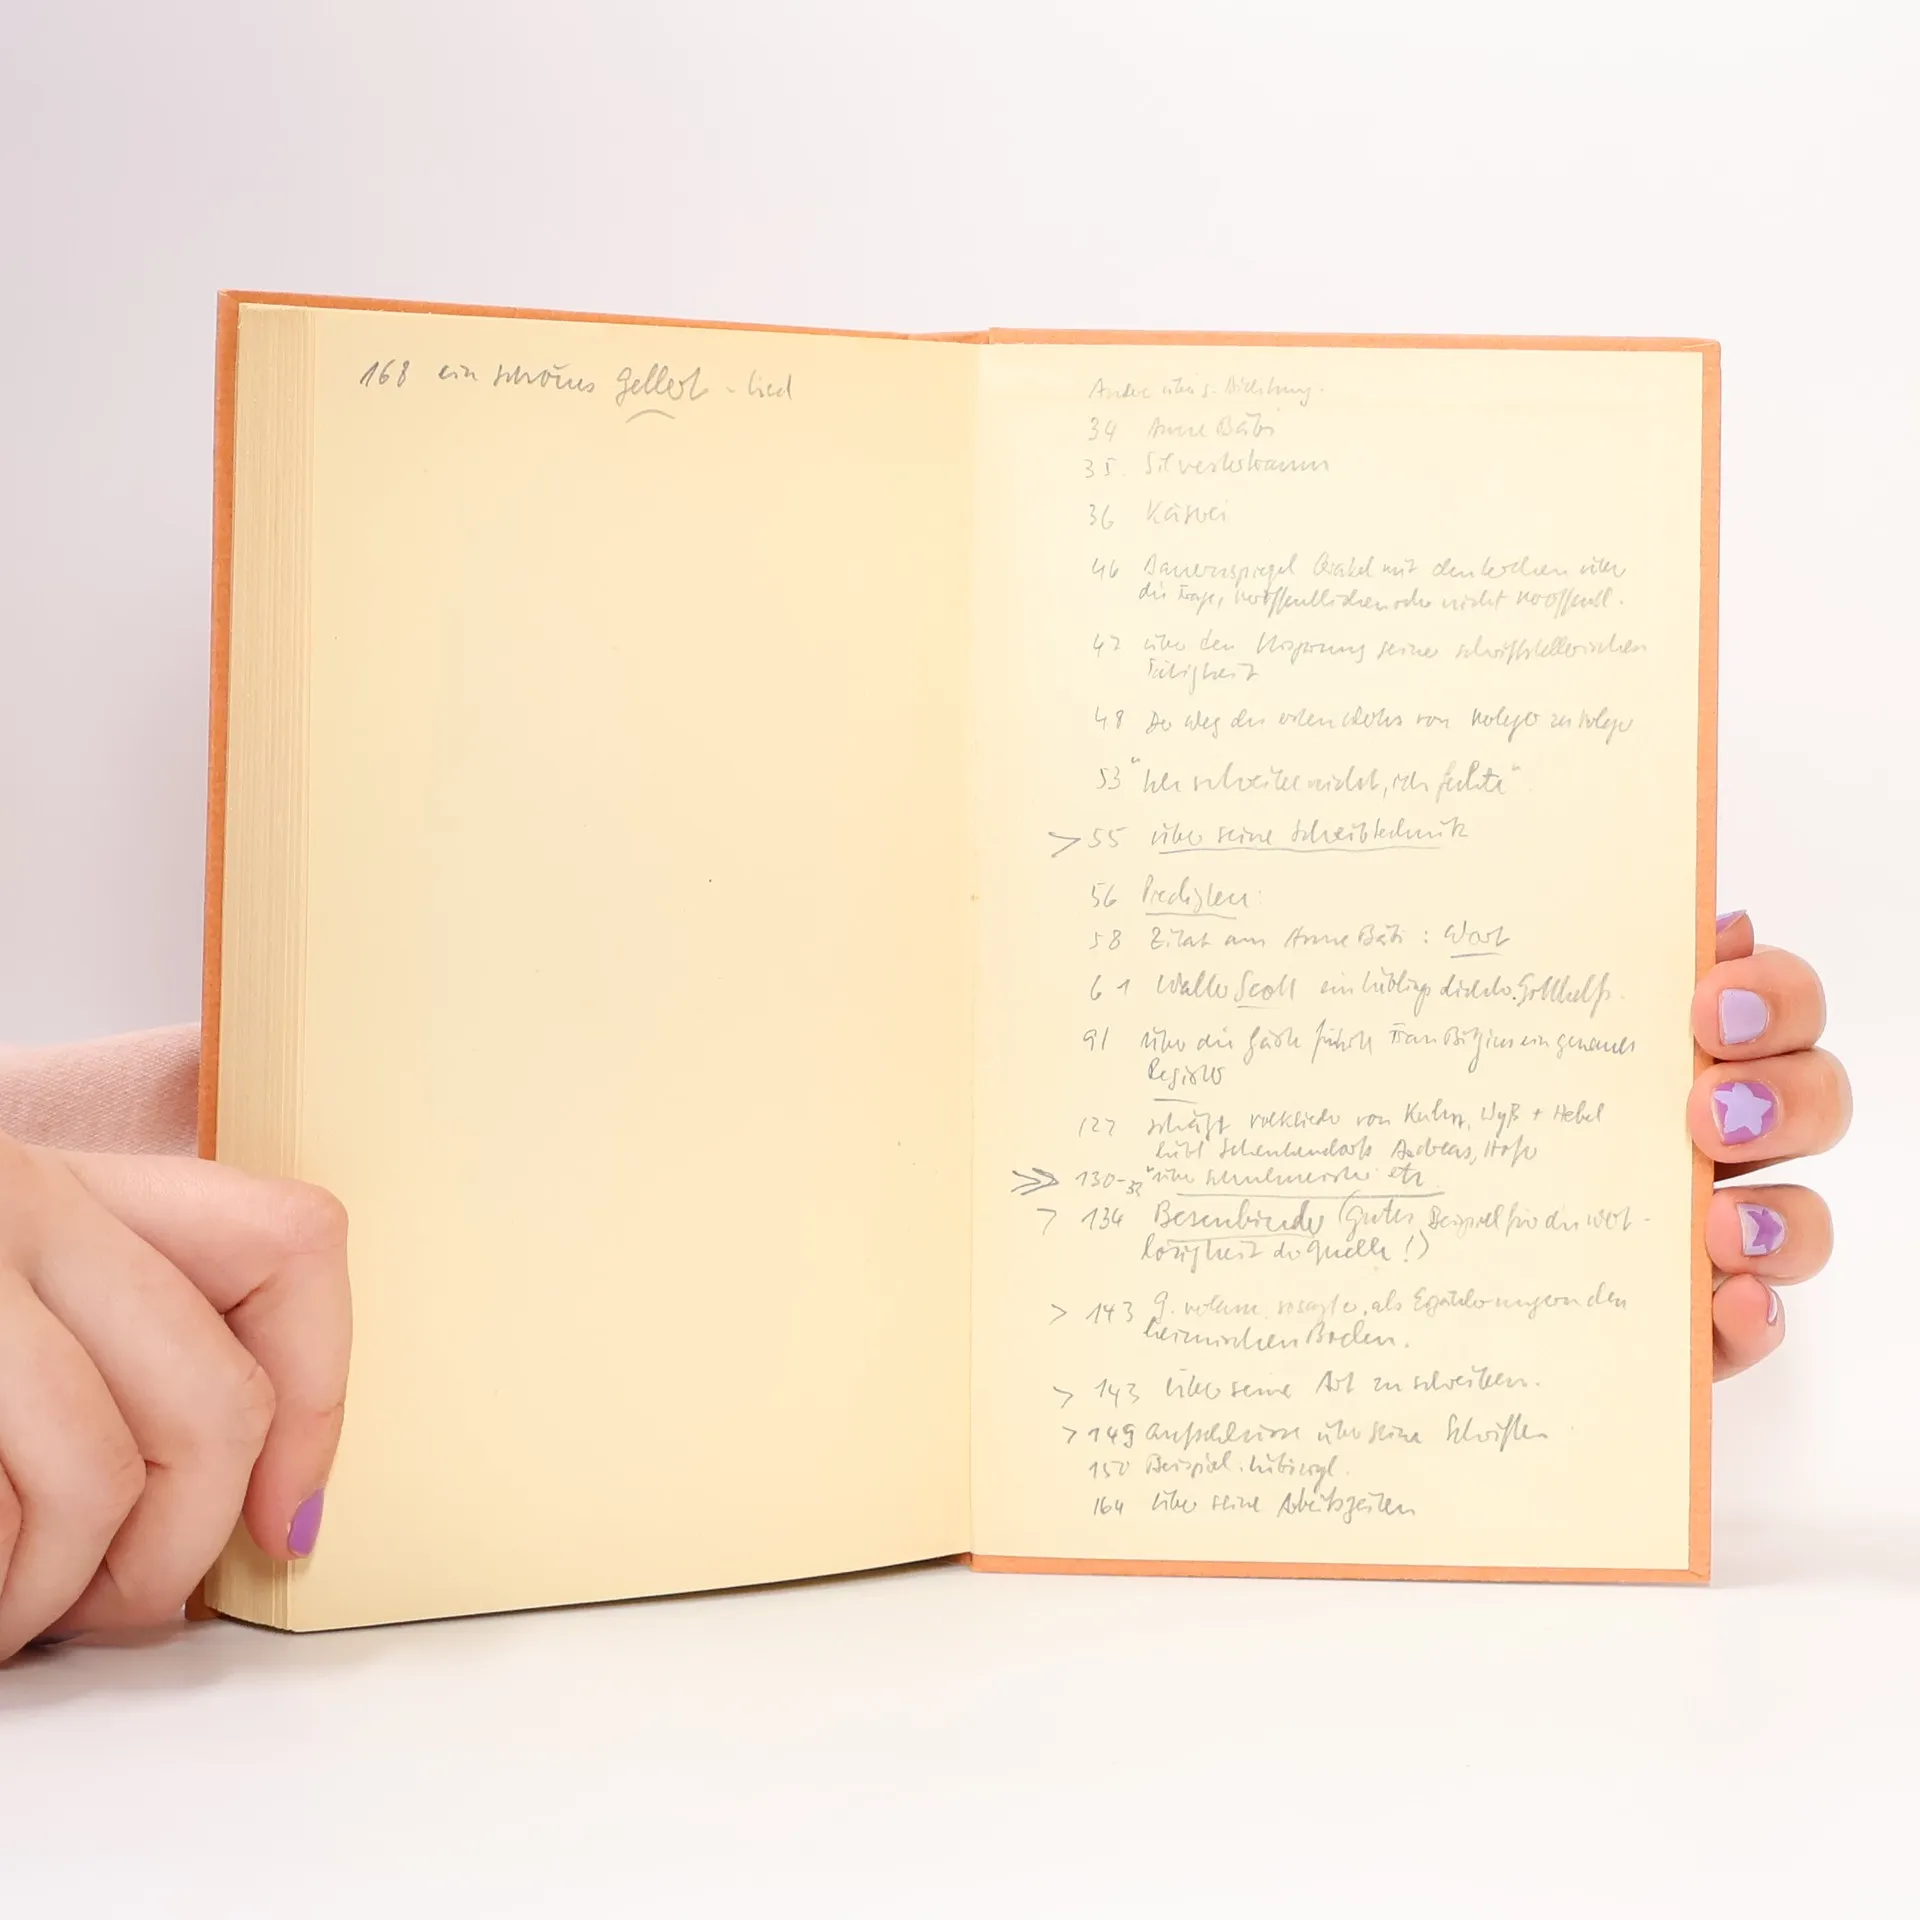 168 ein schönes Gellert-Lied
über s. Dichtung.
34 Anne Bäbi
35. Silvestertraum
36 Käserei
46 Bauernspiegel Orakel mit den Lerchen über
die Frage, veröffentlichen oder nicht veröffentl.
47 über den Ursprung seiner schriftstellerischen
Tätigkeit
48 Der Weg des ersten Werks von Verleger zu Verleger
53 "Ich schreibe nicht, ich fechte"
> 55 über seine Schreibtechnik
56 Predigten:
58 Zitat aus Anne Bäbi: Wort
61 Walter Scott ein Lieblingsdichter Gotthelfs.
91 über die Gäste führte Frau Bitzius ein genaues
Register
127 schätzt Volkslieder von Kuhn, Wyß + Hebel
liebt Schenkendorfs Andreas Hofer
>> 130-32 über Schulmeister etc.
> 134 Besenbinder (gutes Beispiel für die Wert-
losigkeit der Quelle!)
> 143 G. als Erzähler ungern den
heimischen Boden.
> 143 über seine Art zu schreiben.
> 149 Aufschlüsse über seine Schriften
150 Beispiel.
164 über seine Arbeitszeiten